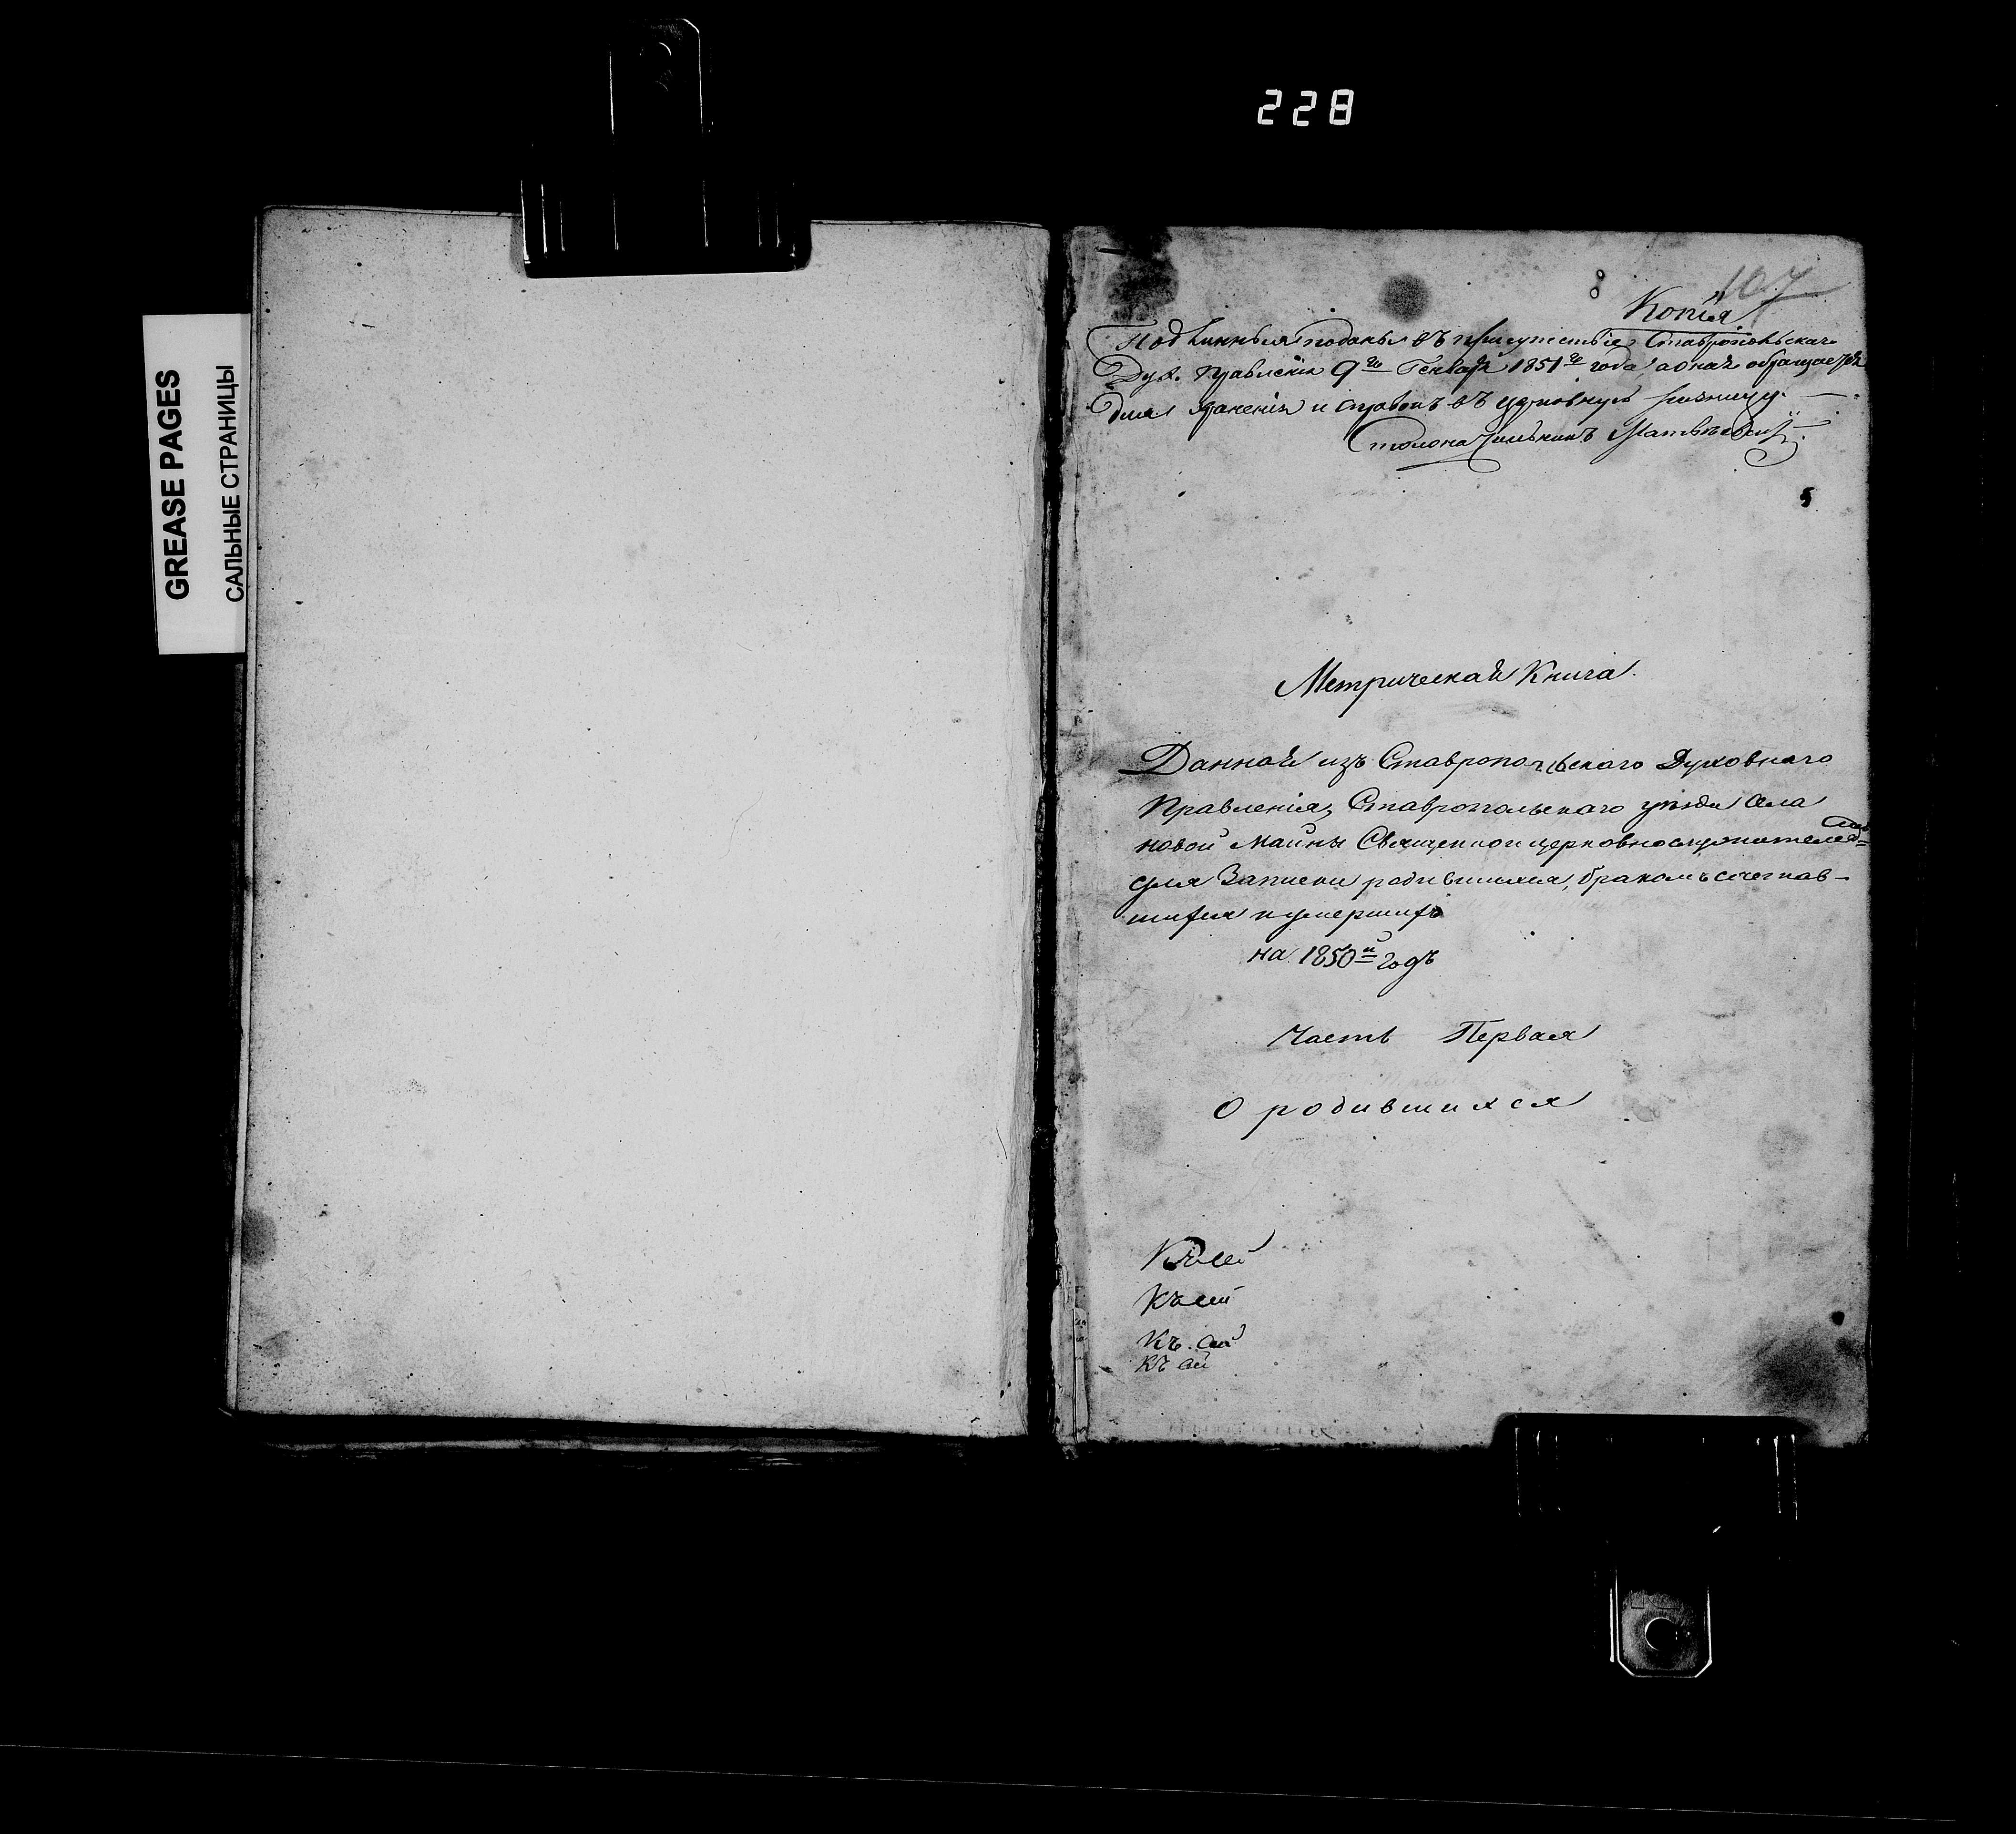 228
GREASE PAGES
САЛЬНЫЕ СТРАНИЦЫ
107
Копія
Подлинныя поданы въ присутствіе Ставропольскаго
Дух. Правленія 9го Генваря 1851го года, а оная обращается
для храненія и справокъ въ церковную ризницу.
Столоначальникъ
Метрическая Книга.
Данная изъ Ставропольскаго Духовнаго
Правленія, Ставропольскаго уѣзда села
новой Майны Священно и церковнослужителямъ
для Записки родившихся, бракомъ сочетав-
шихся и умершихъ
на 1850й годъ
Часть Первая
О родившихся
Къ сей
Къ сей
Къ сей
Къ сей